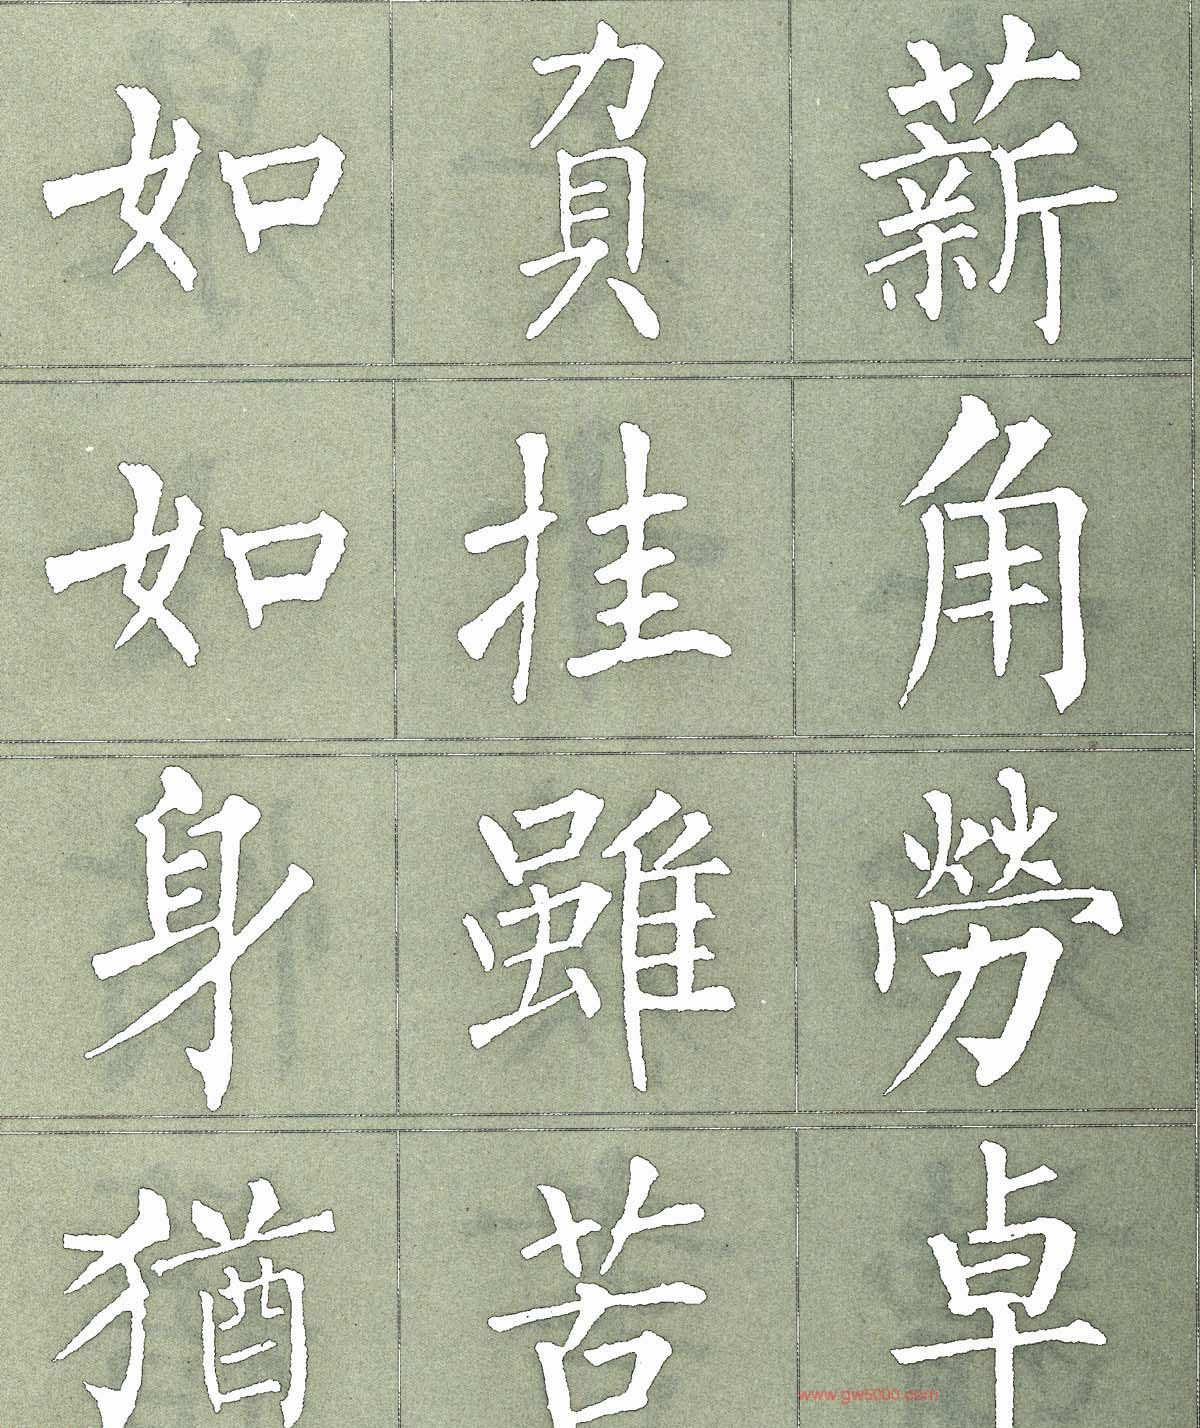 如負薪
如挂角
身雖勞
猶苦卓
www.gw5000.com